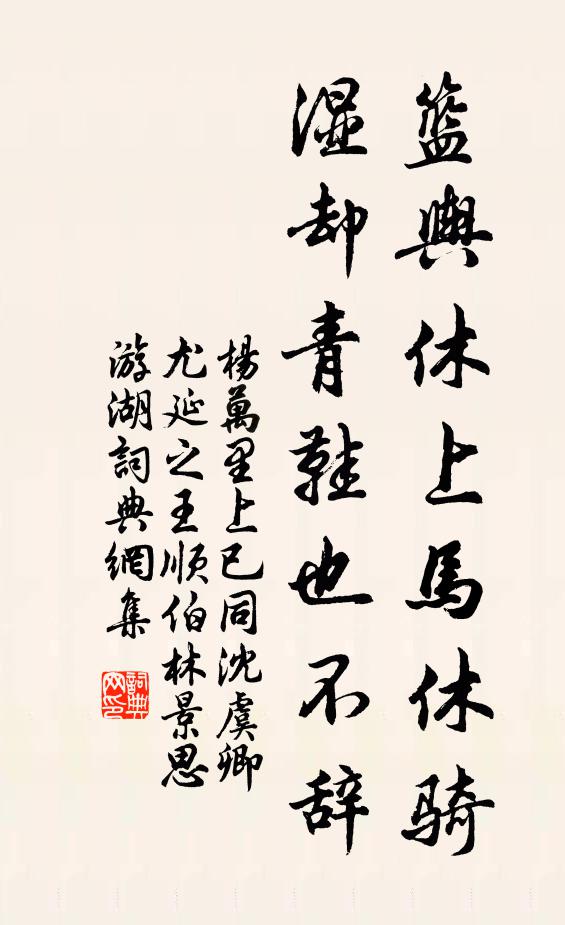 籃輿休上馬休騎
湿却青鞋也不辞
楊萬里上巳同沈虞卿
尤延之王順伯林景思
游湖詞典網集
詞典网印